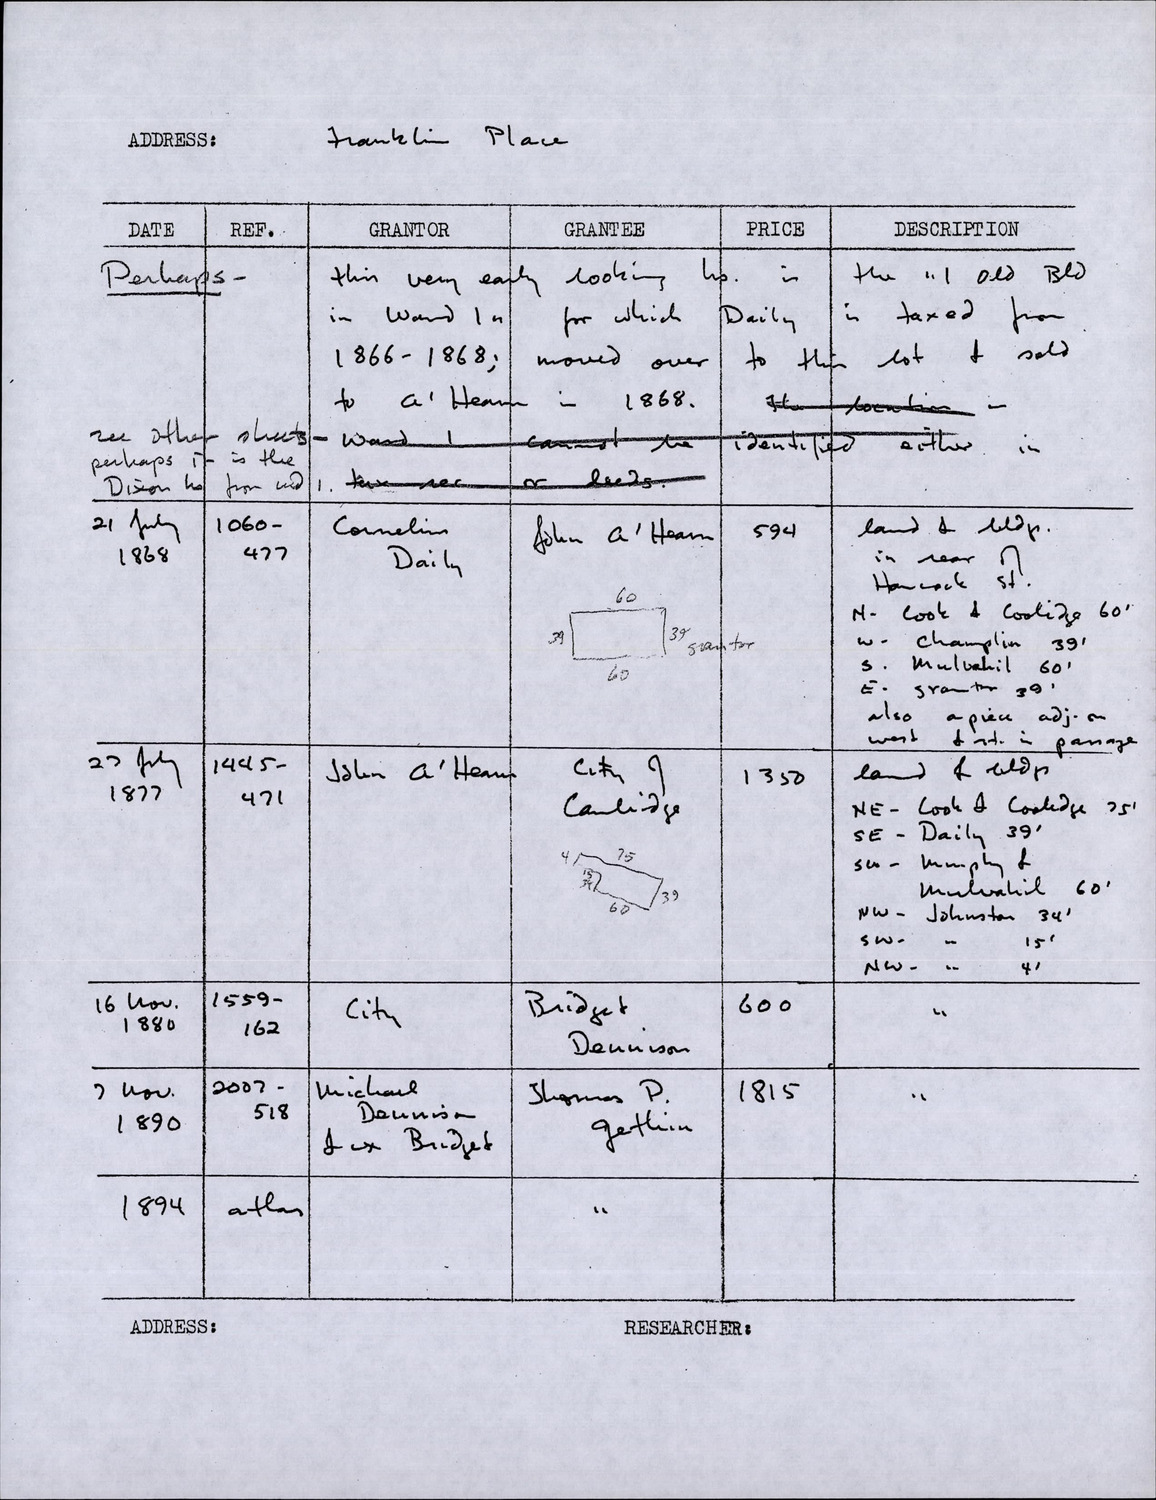 ADDRESS: Franklin Place
DATE REF. GRANTOR GRANTEE PRICE DESCRIPTION
Perhaps - this very early looking hs. is the "1 Old Bld
in Ward 1" for which Daily is taxed from
1866-1868; moved over to this lot & sold
to A'Hearn in 1868. the location in
see other sheets - Ward 1 cannot be identified either in
perhaps it is the
Dixon hs from wd 1. tax rec or deeds.
21 July 1868 1060-477 Cornelius Daily John A'Hearn 594 land & bldp.
in rear of
Hancock St.
60
39 39 grantor
60
N- Cook & Coolidge 60'
W- Champlin 39'
S. Mulvahil 60'
E- grantor 39'
also a piece adj. on
west & rt. in passage
27 July 1877 1445-471 John A'Hearn City of Cambridge 1350 land & bldp
4 75
15
34 39
60
NE- Cook & Coolidge 75'
SE - Daily 39'
SW - Murphy &
Mulvahil 60'
NW- Johnston 34'
SW- " 15'
NW- " 4'
16 Nov. 1880 1559-162 City Bridget Dennison 600 "
7 Nov. 1890 2007-518 Michael Dennison & ux Bridget Thomas P. Gethin 1815 "
1894 atlas "
ADDRESS: RESEARCHER: